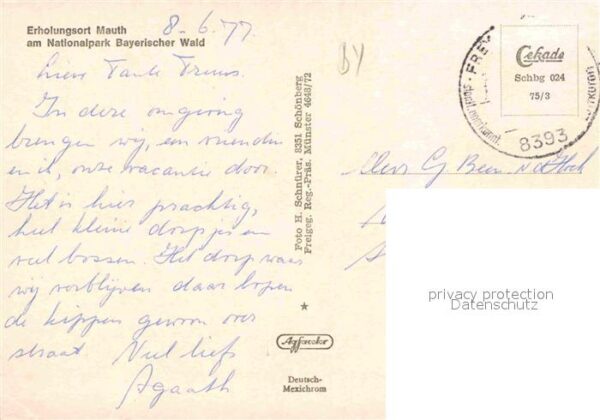 Erholungsort Mauth
am Nationalpark Bayerischer Wald
8-6.77.
Lieve Tante Truus.
In deze omgeving
brengen wij, een vriendin
en ik, onze vacantie door.
Het is hier prachtig,
heel kleine dorpjes en
veel bossen. Het dorp waar
wij verblijven daar lopen
de kippen gewoon over
straat. Veel liefs
Agaath
BY
Foto H. Schnürer, 8351 Schönberg
Freigeg. Reg.-Präs. Münster 4648/72
Agfacolor
Deutsch-
Mexichrom
Cekade
Schbg 024
75/3
FREY
8393
Mevr G
privacy protection
Datenschutz